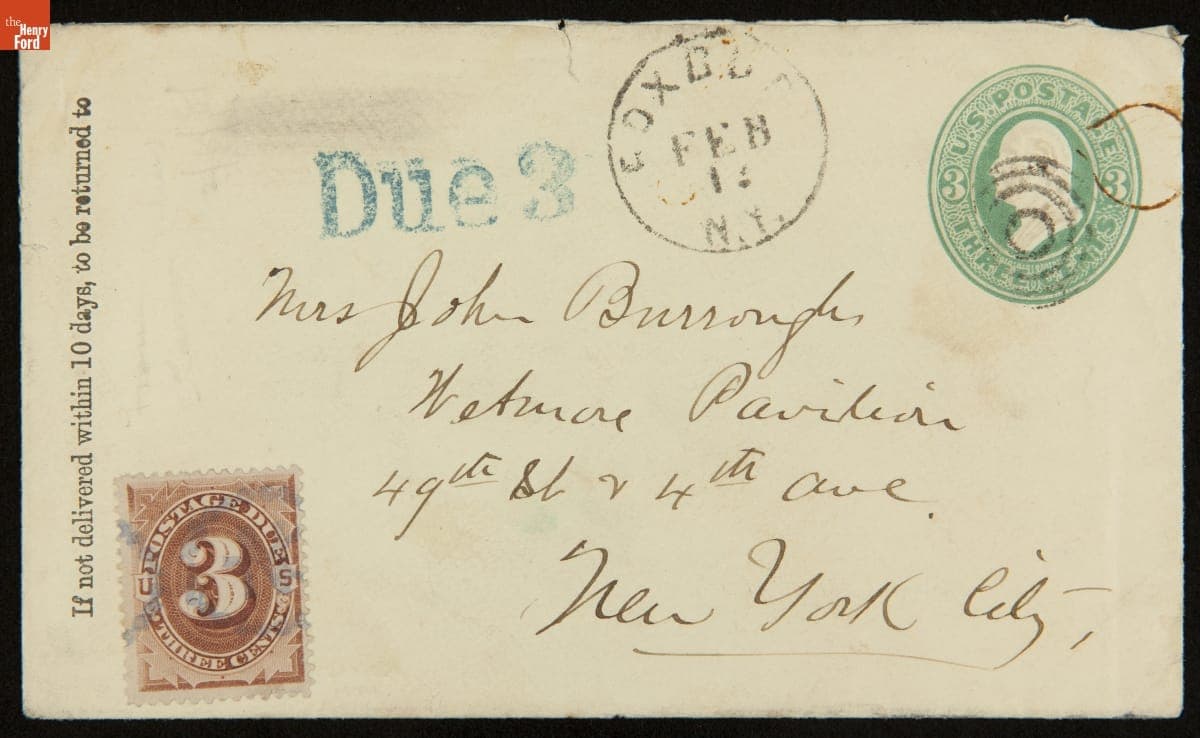 the
Henry
Ford
If not delivered within 10 days, to be returned to
Due 3
FEB
N.Y.
U.S. POSTAGE
3 3
THREE CENTS
Mrs John Burroughs
Wetmore Pavilion
49th St & 4th ave.
New York City,
POSTAGE DUE
U 3 S
THREE CENTS